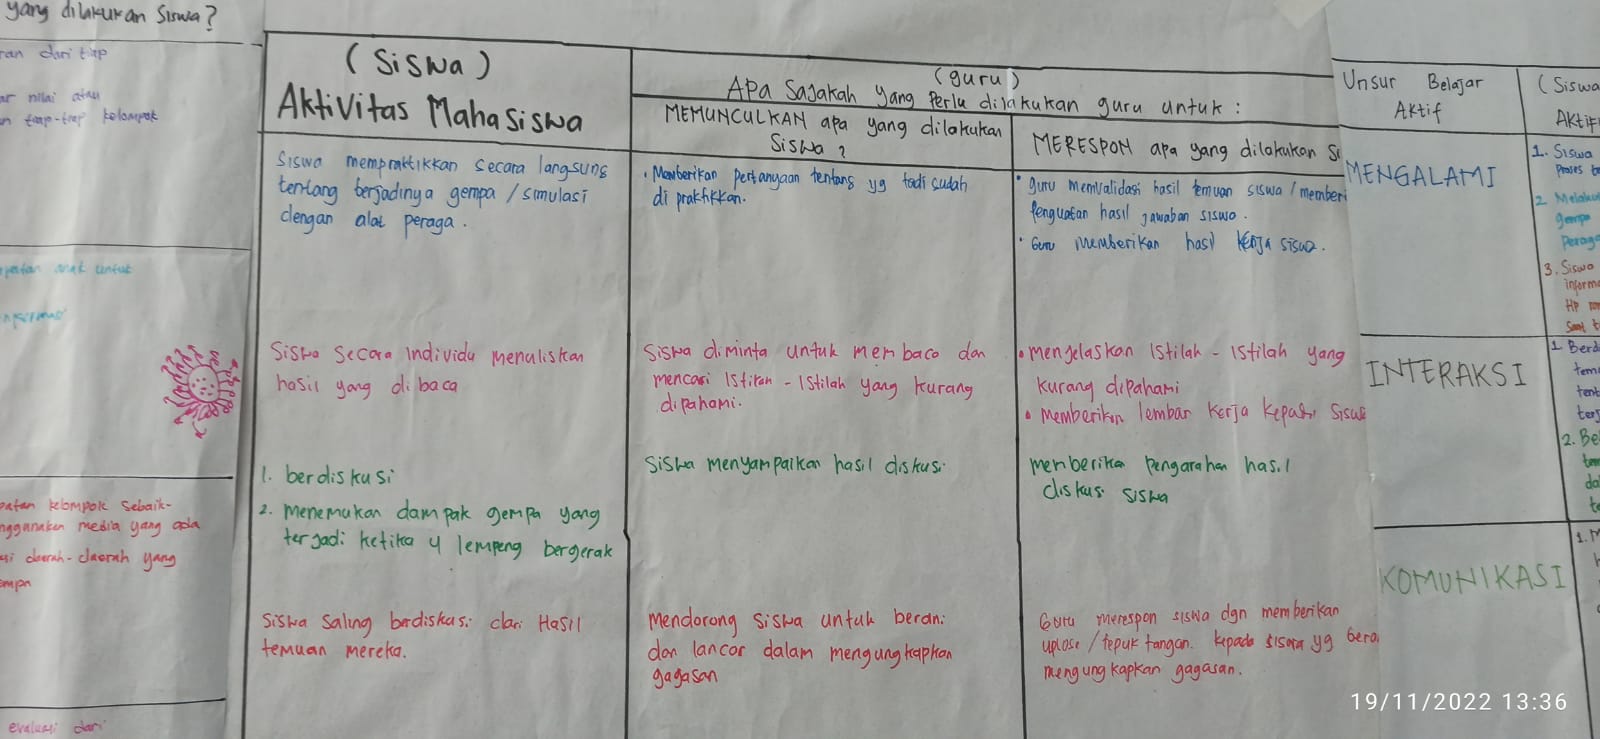 yang dilakukan Siswa?
ran dari tiap
ar nilai atau
n tiap-tiap kelompok
patan anak untuk
patan kelompok sebaik-
nggunakan media yang ada
si daerah-daerah yang
empa
evaluasi dari
(Siswa)
Aktivitas Mahasiswa
Siswa mempraktikkan secara langsung
tentang terjadinya gempa / simulasi
dengan alat peraga.
Siswa Secara Individu menuliskan
hasil yang di baca
1. berdiskusi
2. menemukan dampak gempa yang
terjadi ketika 4 lempeng bergerak
Siswa Saling berdiskusi dari Hasil
temuan mereka.
(guru)
APa Sajakah yang Perlu dilakukan guru untuk :
MEMUNCULKAN apa yang dilakukan
Siswa ?
• Memberikan pertanyaan tentang yg tadi sudah
di praktikkan.
Siswa diminta untuk membaca dan
mencari Istilah - Istilah yang kurang
dipahami.
Siswa menyampaikan hasil diskusi
Mendorong Siswa untuk berani
dan lancar dalam mengungkapkan
gagasan
MERESPON apa yang dilakukan Si
• guru memvalidasi hasil temuan siswa / memberi
penguatan hasil jawaban siswa.
• Guru memberikan hasil kerja siswa.
• menjelaskan Istilah - Istilah yang
kurang dipahami
• memberikan lembar kerja kepada siswa
memberikan pengarahan hasil
diskusi siswa
Guru merespon siswa dgn memberikan
uplose / tepuk tangan. kepada siswa yg bera
mengungkapkan gagasan.
Unsur Belajar
Aktif
MENGALAMI
INTERAKSI
KOMUNIKASI
(Siswa
Aktif
1. Siswa
Proses
2 Melaku
gempa
Peraga
3. Siswa
inform
HP
Saat t
1. Berd
tem
tent
terj
2. Be
tem
da
te
1. M
19/11/2022 13:36